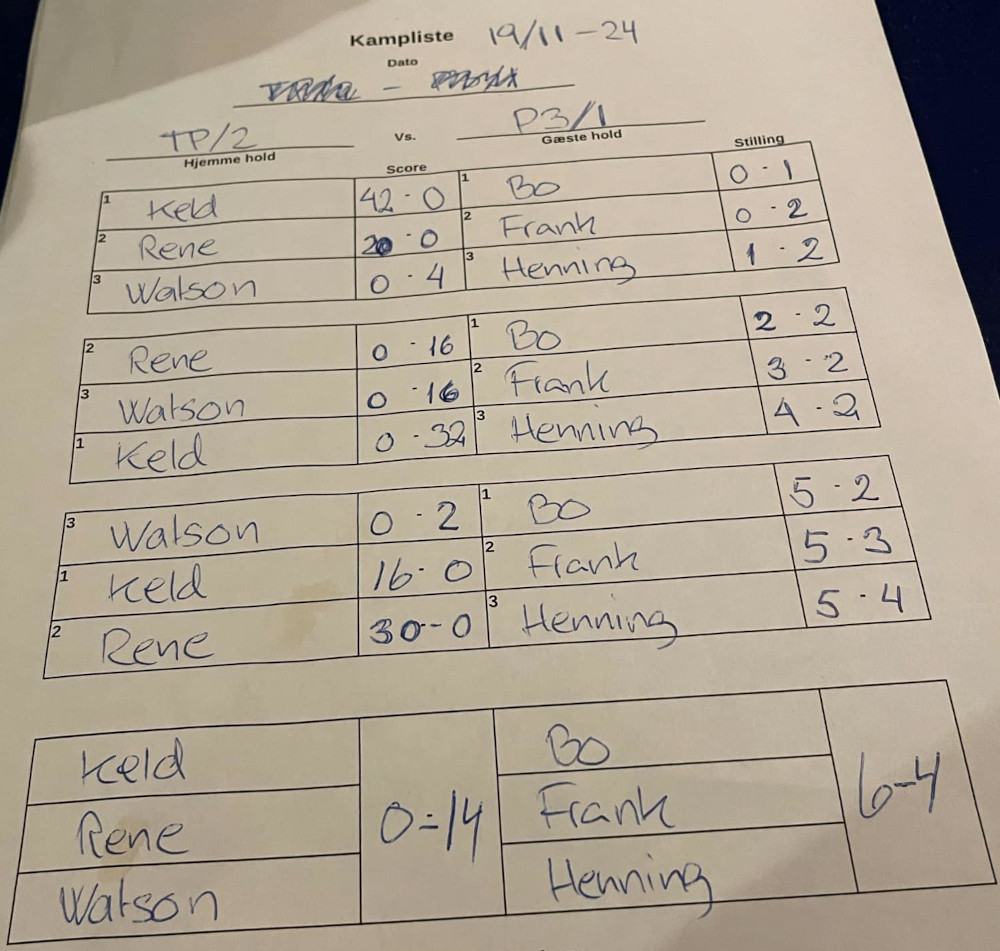 Kampliste 19/11-24
Dato
TP/2 Vs. P3/1
Hjemme hold Gæste hold
Score Stilling
1 Keld 42-0 1 Bo 0-1
2 Rene 20-0 2 Frank 0-2
3 Watson 0-4 3 Henning 1-2
2 Rene 0-16 1 Bo 2-2
3 Watson 0-16 2 Frank 3-2
1 Keld 0-32 3 Henning 4-2
3 Watson 0-2 1 Bo 5-2
1 Keld 16-0 2 Frank 5-3
2 Rene 30-0 3 Henning 5-4
Keld Bo
Rene 0-14 Frank 6-4
Watson Henning